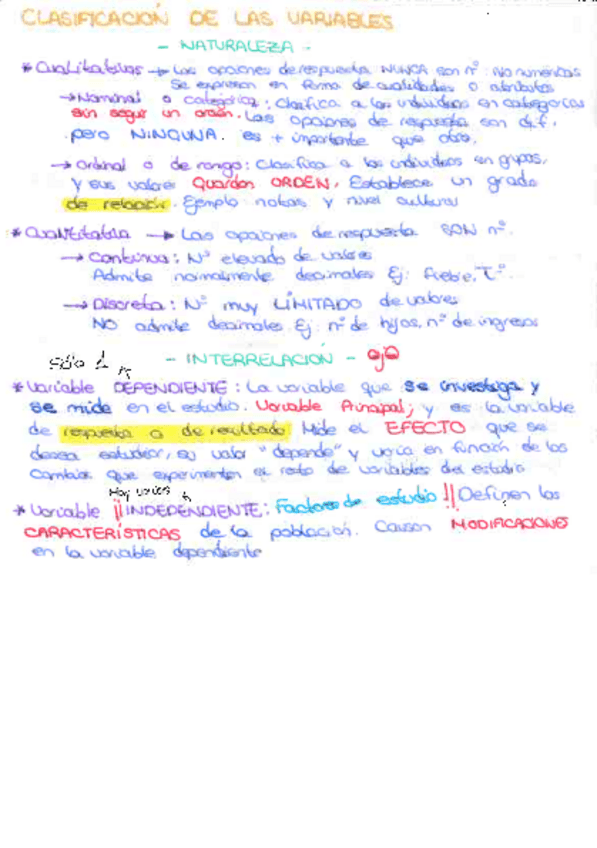 CLASIFICACIÓN DE LAS VARIABLES
- NATURALEZA -
* Cualitativas → Las opciones de respuesta NUNCA son nº. No numéricas
Se expresan en forma de cualidades o atributos
→ Nominal o categórica: Clasifica a los individuos en categorías
sin seguir un orden. Las opciones de respuesta son dif.
pero NINGUNA es + importante que otra.
→ Ordinal o de rango: Clasifica a los individuos en grupos,
y sus valores Guardan ORDEN. Establece un grado
de relación. Ejemplo notas y nivel cultural
* Cuantitativa → Las opciones de respuesta SON nº.
→ Continua: Nº elevado de valores
Admite normalmente decimales Ej: fiebre, Tº.
→ Discreta: Nº muy LIMITADO de valores
NO admite decimales. Ej: nº de hijos, nº de ingresos
- INTERRELACIÓN - ojo
Sólo 1
* Variable DEPENDIENTE: La variable que se investiga y
se mide en el estudio. Variable Principal; y es la variable
de respuesta o de resultado. Mide el EFECTO que se
desea estudiar, su valor "depende" y varía en función de los
cambios que experimenten el resto de variables del estudio
Hay varios
* Variable ¡¡INDEPENDIENTE: Factores de estudio!! Definen las
CARACTERÍSTICAS de la población. Causan MODIFICACIONES
en la variable dependiente